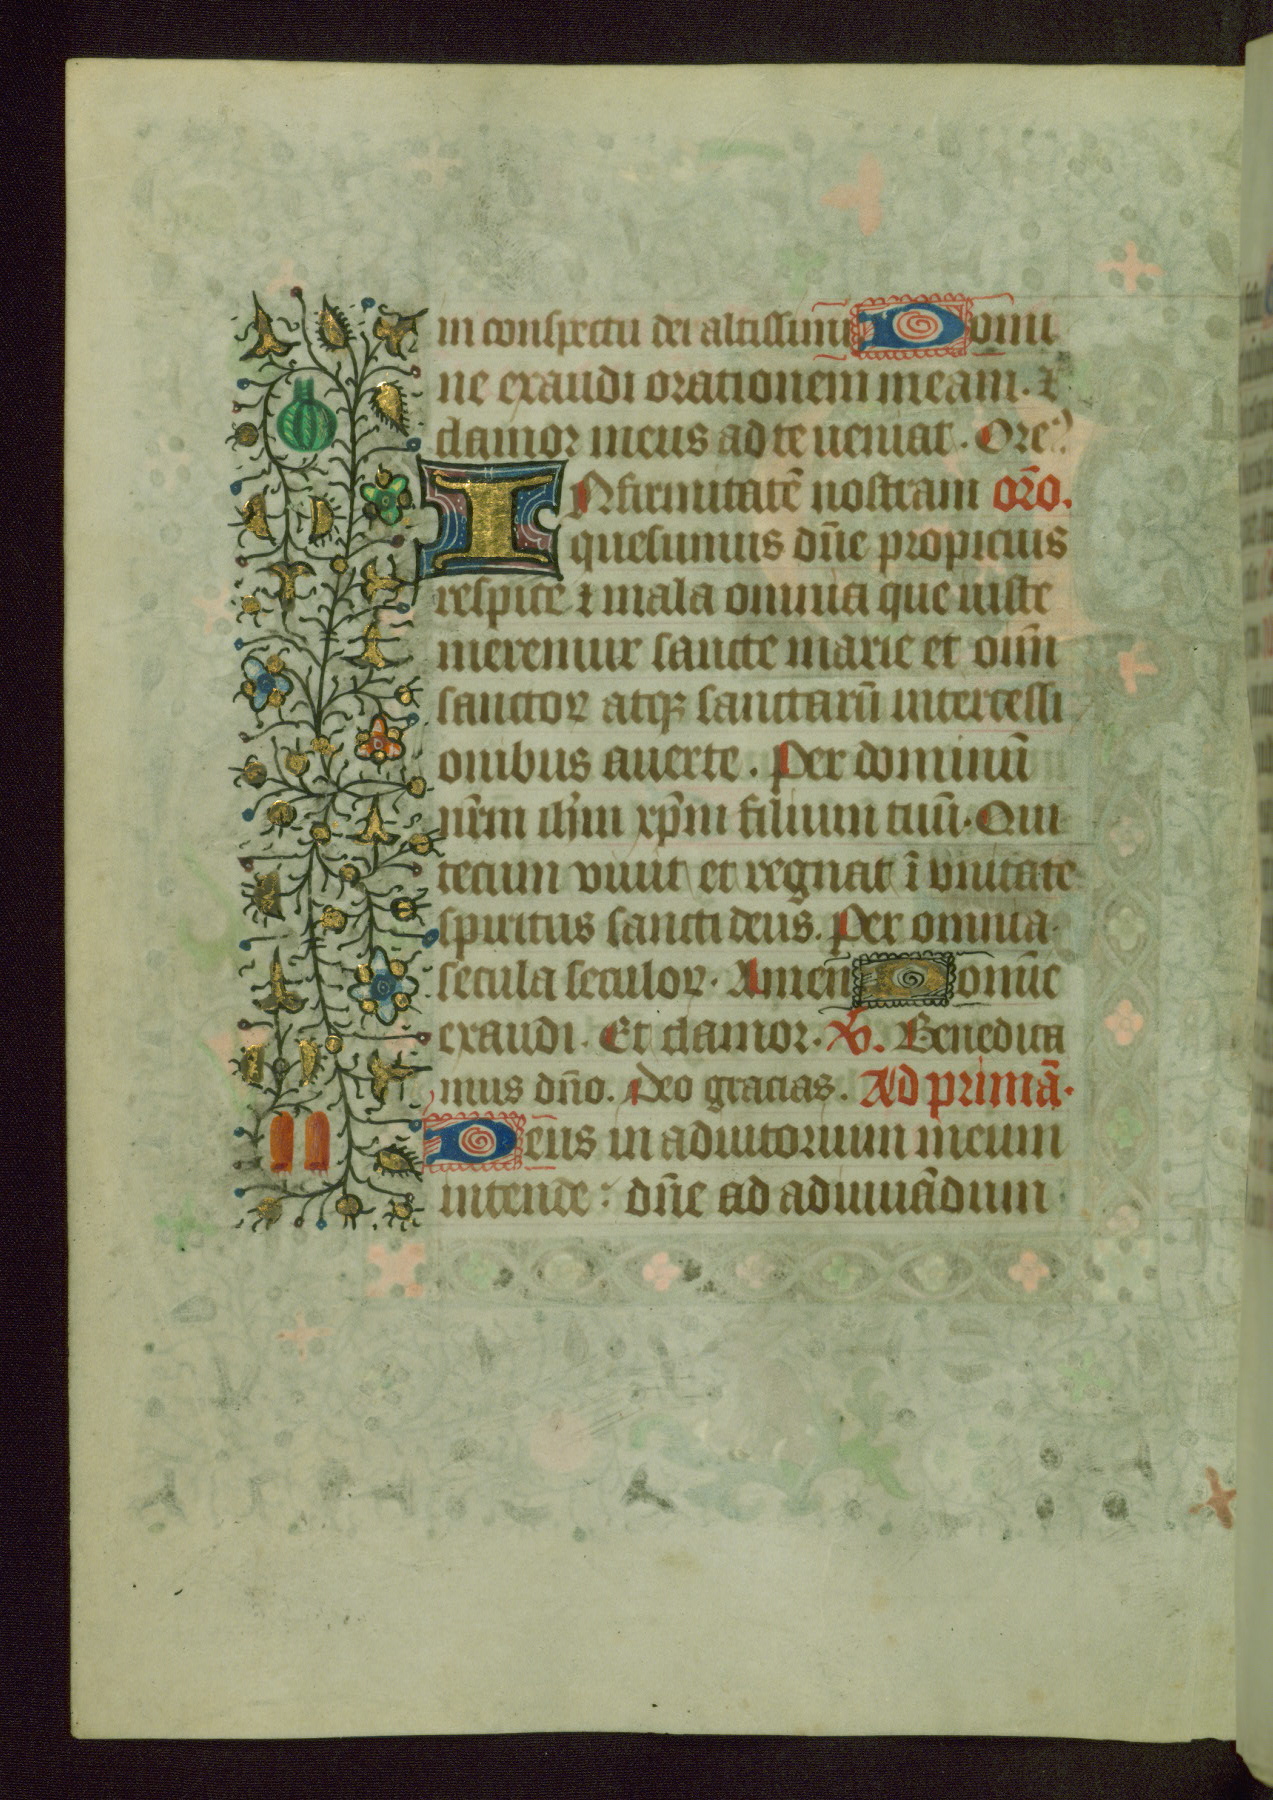 in conspectu dei altissimi Domi
ne exaudi orationem meam. ⁊
clamor meus ad te ueniat. Ore᷒
INfirmitatē nostram orō.
quesumus dn̄e propicius
respice ⁊ mala omnia que iuste
meremur sancte marie et oīm
sanctoꝝ atqꝫ sanctarū intercessi
onibus auerte. Per dominū
nr̄m ih̄m xp̄m filium tuū. Qui
tecum viuit et regnat ī vnitate
spiritus sancti deus. Per omnia
secula seculoꝝ. Amen Domīe
exaudi. Et clamor. V. Benedica
mus dn̄o. Deo gracias. Ad primā.
Deus in adiutorium meum
intende: dn̄e ad adiuuādum